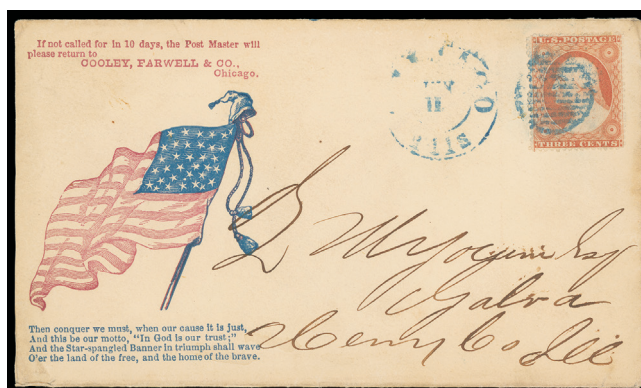 If not called for in 10 days, the Post Master will
please return to
COOLEY, FARWELL & CO.,
Chicago.
CHICAGO
ILLS
U.S. POSTAGE
THREE CENTS
Yocum Esq
Galva
Henry Co Ill
Then conquer we must, when our cause it is just,
And this be our motto, "In God is our trust;"
And the Star-spangled Banner in triumph shall wave
O'er the land of the free, and the home of the brave.